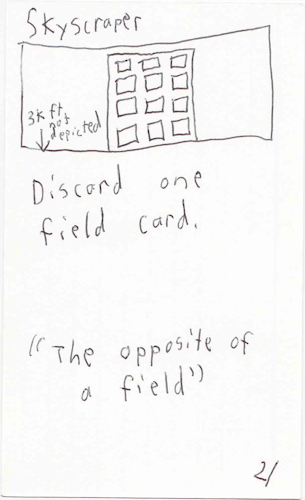 Skyscraper
3k ft
not
depicted
Discard one
field card.
"The opposite of
a field"
21